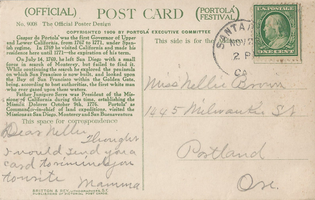 (OFFICIAL) POST CARD (PORTOLA FESTIVAL)
No. 9088 The Official Poster Design
COPYRIGHTED 1909 BY PORTOLA EXECUTIVE COMMITTEE
Gaspar de Portola was the first Governor of Upper
and Lower California, from 1767 to 1771, under Spanish
regime. In 1769 he visited California and made his
residence here until 1771—the expiration of his term.
On July 14, 1769, he left San Diego with a
force in search of Monterey, but failed to find it.
While continuing the search he explored the peninsula
on which San Francisco is now built, and looked upon
the Bay of San Francisco within the Golden Gate,
being, according to best authorities, the first white man
who ever gazed upon these waters.
Father Junipero Serra was President of the Missions
of California during this time, establishing the
Mission Dolores October 9th, 1776. Portola as
visited the
Missions in San Diego, Monterey and San Buenaventura
This space for correspondence
This side for the
SANTA
NOV
2 P
CA
ONE CENT
Miss Nellie Brown
1645 Milwaukie St
Portland
Ore.
Dear Nellie
Thought
I would send you a
card to remind you
to write
Mamma